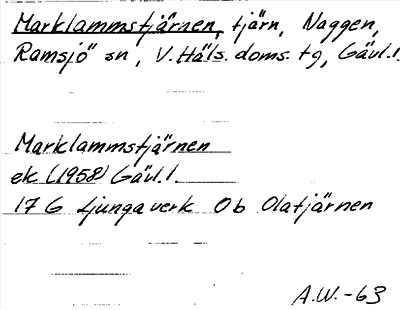 Marklammstjärnen, tjärn, Naggen,
Ramsjö sn, V. Häls. doms. tg, Gävl.l.
Marklammstjärnen
ek (1958) Gävl.l.
17 G Ljungaverk Ob Olatjärnen
A.W.-63